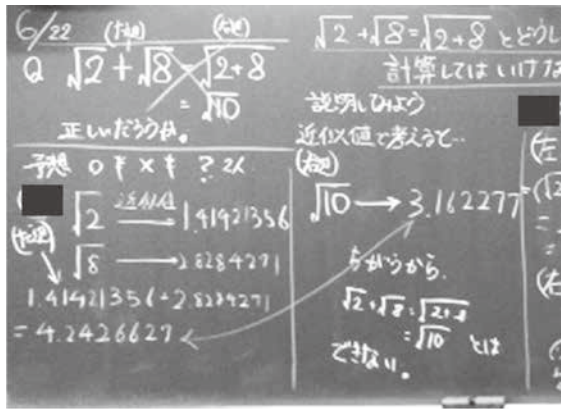 6/22
(左辺) (右辺)
Q √2 + √8 = √2+8
= √10
正しいだろうか。
予想 0 ? 2人
√2 近似値 → 1.41421356
(左辺)
√8 → 2.8284271
1.41421356+2.8284271
= 4.2426627
√2 + √8 = √2+8 とどうし
計算してはいけな
説明してみよう
近似値で考えると…
(右辺)
√10 → 3.162277
ちがうから、
√2 + √8 = √2+8
= √10 とは
できない。
(左
(√2
=
=
(右